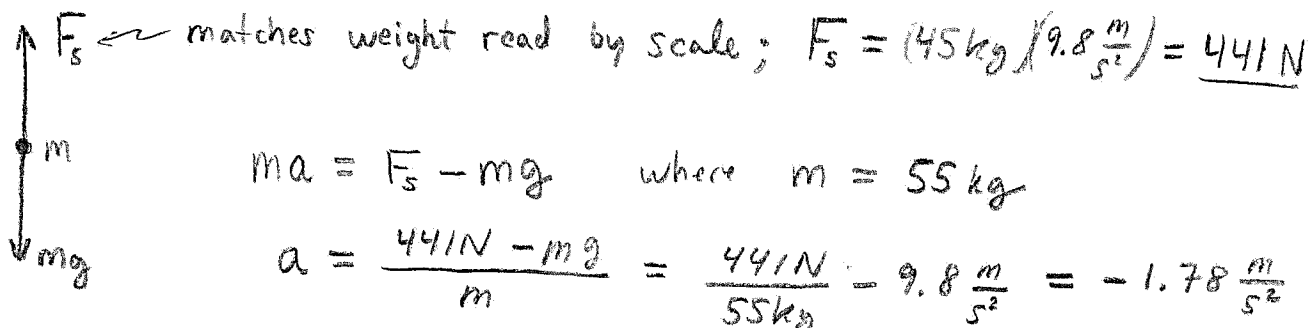 F_s matches weight read by scale; F_s = (45 kg)(9.8 m/s²) = 441 N
m
ma = F_s - mg where m = 55 kg
mg
a = (441N - mg)/m = 441N/55kg - 9.8 m/s² = -1.78 m/s²